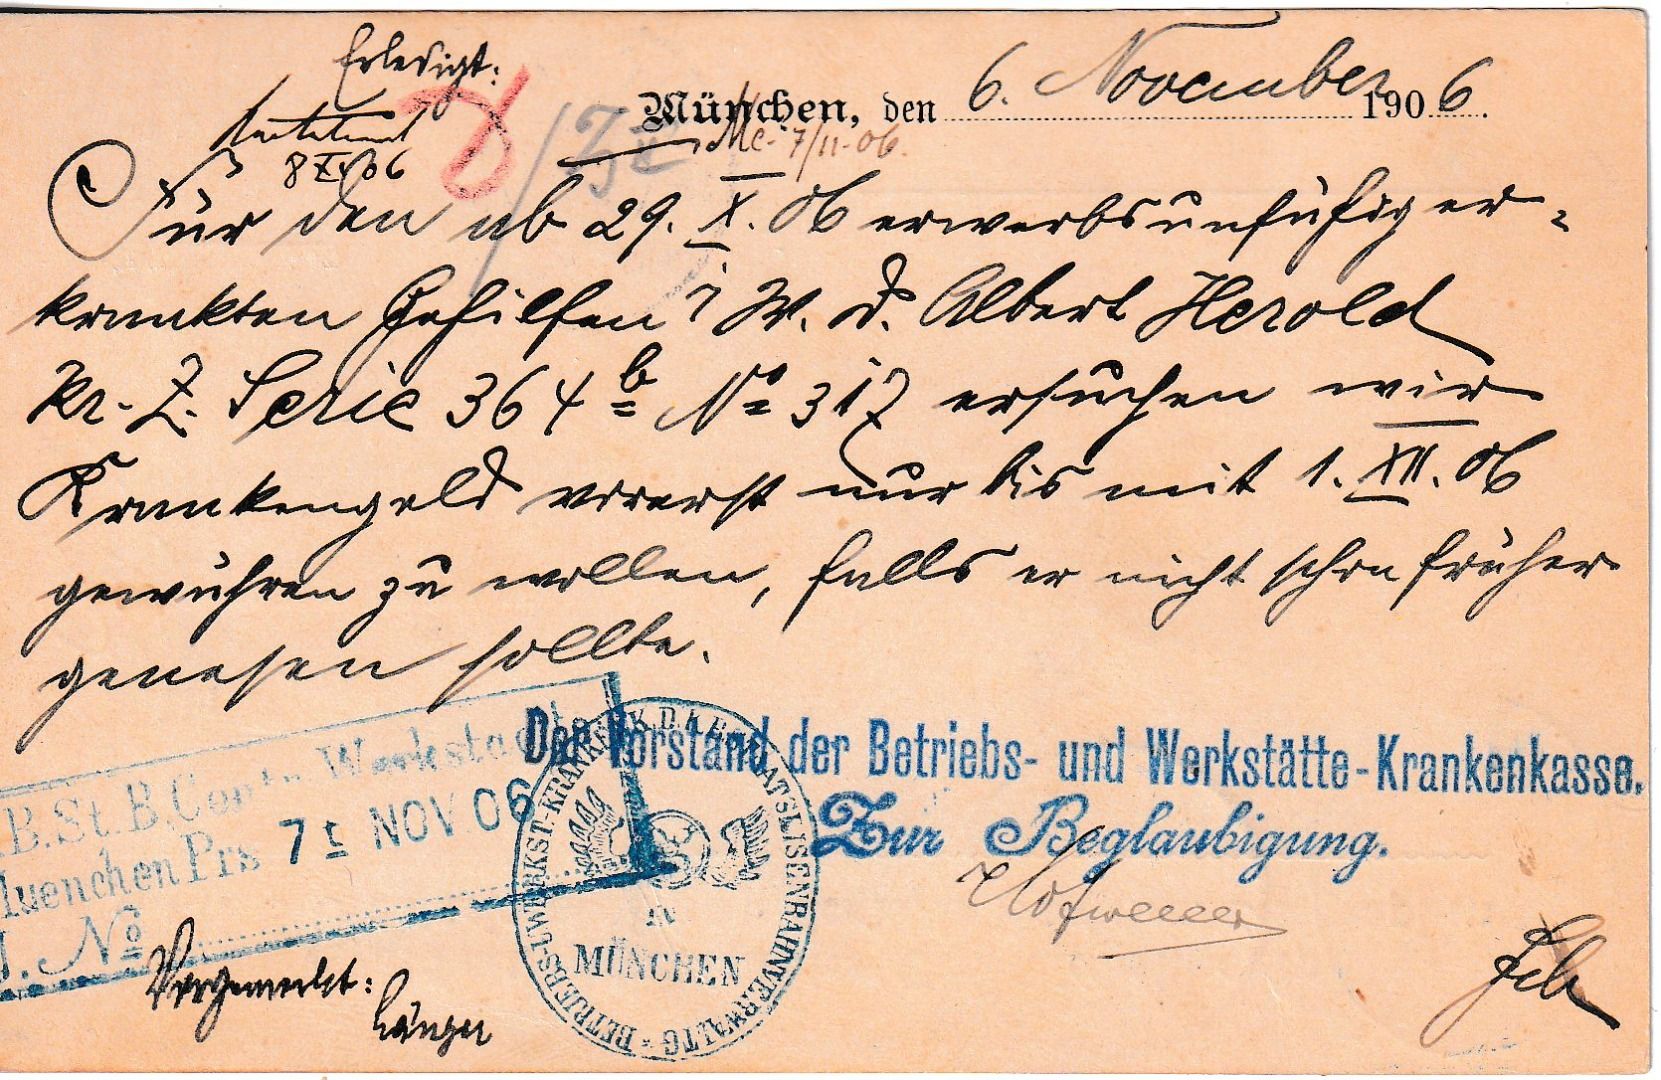 Erledigt:
8 XI. 06
München, den 6. November 1906.
Mc. 7/11. 06.
Für den ab 29. X. 06 erwerbsunfähig er-
krankten Gehilfen i W. d. Albert Herold
Kr. Z. Serie 364 b No 317 ersuchen wir
Krankengeld vorerst nur bis mit 1. XII. 06
gewähren zu wollen, falls er nicht schon früher
genesen sollte.
Der Vorstand der Betriebs- und Werkstätte-Krankenkasse.
Zur Beglaubigung.
B. St. B. Centr. Werkstaette
Muenchen
7 NOV 06
J. No
BETRIEBS-U.WERKST-KRANKENK. D. K. B. STAATSEISENBAHNVERWALTG
IN
MÜNCHEN
Vorgemerkt: